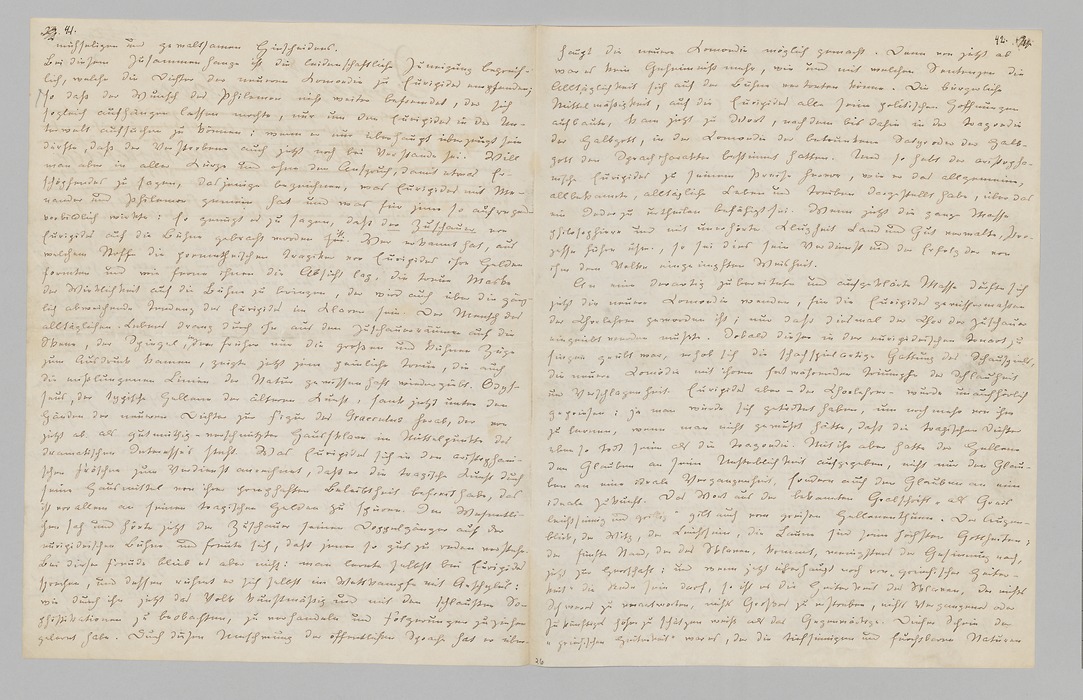 39. 41.
mühseligen und gewaltsamen Hinscheidens.
Bei diesem Zusammenhange ist die leidenschaftliche Zuneigung begreif-
lich, welche die Dichter der neueren Komoedie zu Euripides empfanden;
so daß der Wunsch des Philemon nicht weiter befremdet, der sich
sogleich aufhängen lassen mochte, nur um den Euripides in der Un-
terwelt aufsuchen zu können: wenn er nur überhaupt überzeugt sein
dürfte, daß der Verstorbene auch jetzt noch bei Verstande sei. Will
man aber in aller Kürze und ohne den Anspruch, damit etwas Er-
schöpfendes zu sagen, dasjenige bezeichnen, was Euripides mit Me-
nander und Philemon gemein hat und was für jene so aufregend
vorbildlich wirkte: so genügt es zu sagen, daß der Zuschauer von
Euripides auf die Bühne gebracht worden ist. Wer erkannt hat, aus
welchem Stoffe die prometheischen Tragiker vor Euripides ihre Helden
formten und wie ferne ihnen die Absicht lag, die treue Maske
der Wirklichkeit auf die Bühne zu bringen, der wird auch über die gänz-
lich abweichende Tendenz des Euripides im Klaren sein. Der Mensch des
alltäglichen Lebens drang durch ihn aus den Zuschauerräumen auf die
Skene, der Spiegel, der früher nur die großen und kühnen Züge
zum Ausdruck kamen, zeigte jetzt jene peinliche Treue, die auch
die mißlungenen Linien der Natur gewissenhaft wiedergiebt. Odys-
seus, der typische Hellene der älteren Kunst, sank jetzt unter den
Händen der neueren Dichter zur Figur des Graeculus herab, der von
jetzt ab als gutmüthig-verschmitzter Haussklave im Mittelpunkte des
dramatischen Interesse's steht. Was Euripides sich in den aristophani-
schen Fröschen zum Verdienst anrechnet, daß er die tragische Kunst durch
seine Hausmittel von ihrer pomphaften Beleibtheit befreit habe, das
ist vor allem an seinen tragischen Helden zu spüren. Im Wesentli-
chen sah und hörte jetzt der Zuschauer seinen Doppelgänger auf der
euripideischen Bühne und freute sich, daß jener so gut zu reden verstehe.
Bei dieser Freude blieb es aber nicht: man lernte selbst bei Euripides
sprechen, und dessen rühmt er sich selbst im Wettkampfe mit Aeschylus:
wie durch ihn jetzt das Volk kunstmäßig und mit den schlausten So-
phistikationen zu beobachten, zu verhandeln und Folgerungen zu ziehen
gelernt habe. Durch diesen Umschwung der öffentlichen Sprache hat er über-
42.
haupt die neuere Komoedie möglich gemacht. Denn von jetzt ab
war es kein Geheimniss mehr, wie und mit welchen Sentenzen die
Alltäglichkeit sich auf der Bühne vertreten könne. Die bürgerliche
Mittelmäßigkeit, auf die Euripides alle seine politischen Hoffnungen
aufbaute, kam jetzt zu Wort, nachdem bis dahin in der Tragoedie
der Halbgott, in der Komoedie der betrunkene Satyr oder der Halb-
gott den Sprachcharakter bestimmt hatten. Und so hebt der aristopha-
nische Euripides zu seinem Preise hervor, wie er das allgemeine,
allbekannte, alltägliche Leben und Treiben dargestellt habe, über das
ein Jeder zu urtheilen befähigt sei. Wenn jetzt die ganze Masse
philosophiere und mit unerhörter Klugheit Land und Gut verwalte, Pro-
zesse führe usw., so sei dies sein Verdienst und der Erfolg der von
ihm dem Volke eingeimpften Weisheit.
An eine derartig zubereitete und aufgeklärte Masse durfte sich
jetzt die neuere Komoedie wenden, für die Euripides gewissermaßen
der Chorlehrer geworden ist; nur daß diesmal der Chor der Zuschauer
eingeübt werden mußte. Sobald dieser in der euripideischen Tonart zu
singen geübt war, erhob sich die schachspielartige Gattung des Schauspiels,
die neuere Komödie mit ihrem fortwährenden Triumphe der Schlauheit
und Verschlagenheit. Euripides aber – der Chorlehrer – wurde unaufhörlich
gepriesen: ja man würde sich getödtet haben, um noch mehr von ihm
zu lernen, wenn man nicht gewußt hätte, daß die tragischen Dichter
eben so todt seien als die Tragoedie. Mit ihr aber hatte der Hellene
den Glauben an seine Unsterblichkeit aufgegeben, nicht nur den Glau-
ben an eine ideale Vergangenheit, sondern auch den Glauben an eine
ideale Zukunft. Das Wort aus der bekannten Grabschrift „als Greis
leichtsinnig und grillig" gilt auch vom greisen Hellenenthume. Der Augen-
blick, der Witz, der Leichtsinn, die Laune sind seine höchsten Gottheiten;
der fünfte Stand, der des Sklaven, kommt, wenigstens der Gesinnung nach,
jetzt zur Herrschaft: und wenn jetzt überhaupt noch von „griechischer Heiter-
keit" die Rede sein darf, so ist es die Heiterkeit des Sklaven, der nichts
Schweres zu verantworten, nichts Großes zu erstreben, nichts Vergangenes oder
Zukünftiges höher zu schätzen weiß als das Gegenwärtige. Dieser Schein der
„griechischen Heiterkeit" war es, der die tiefsinnigen und furchtbaren Naturen
26